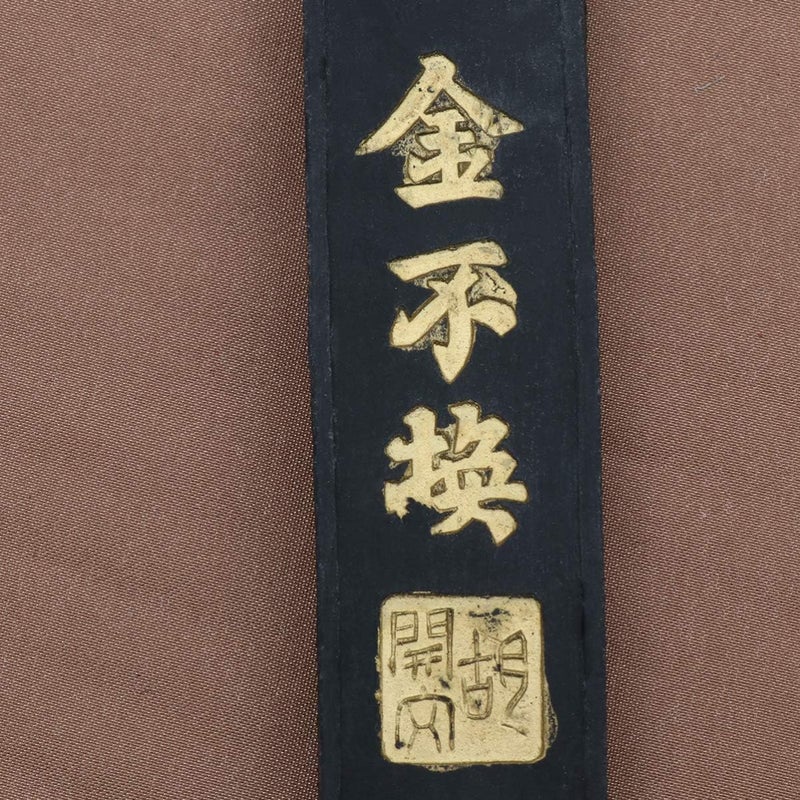 金不換
胡開文